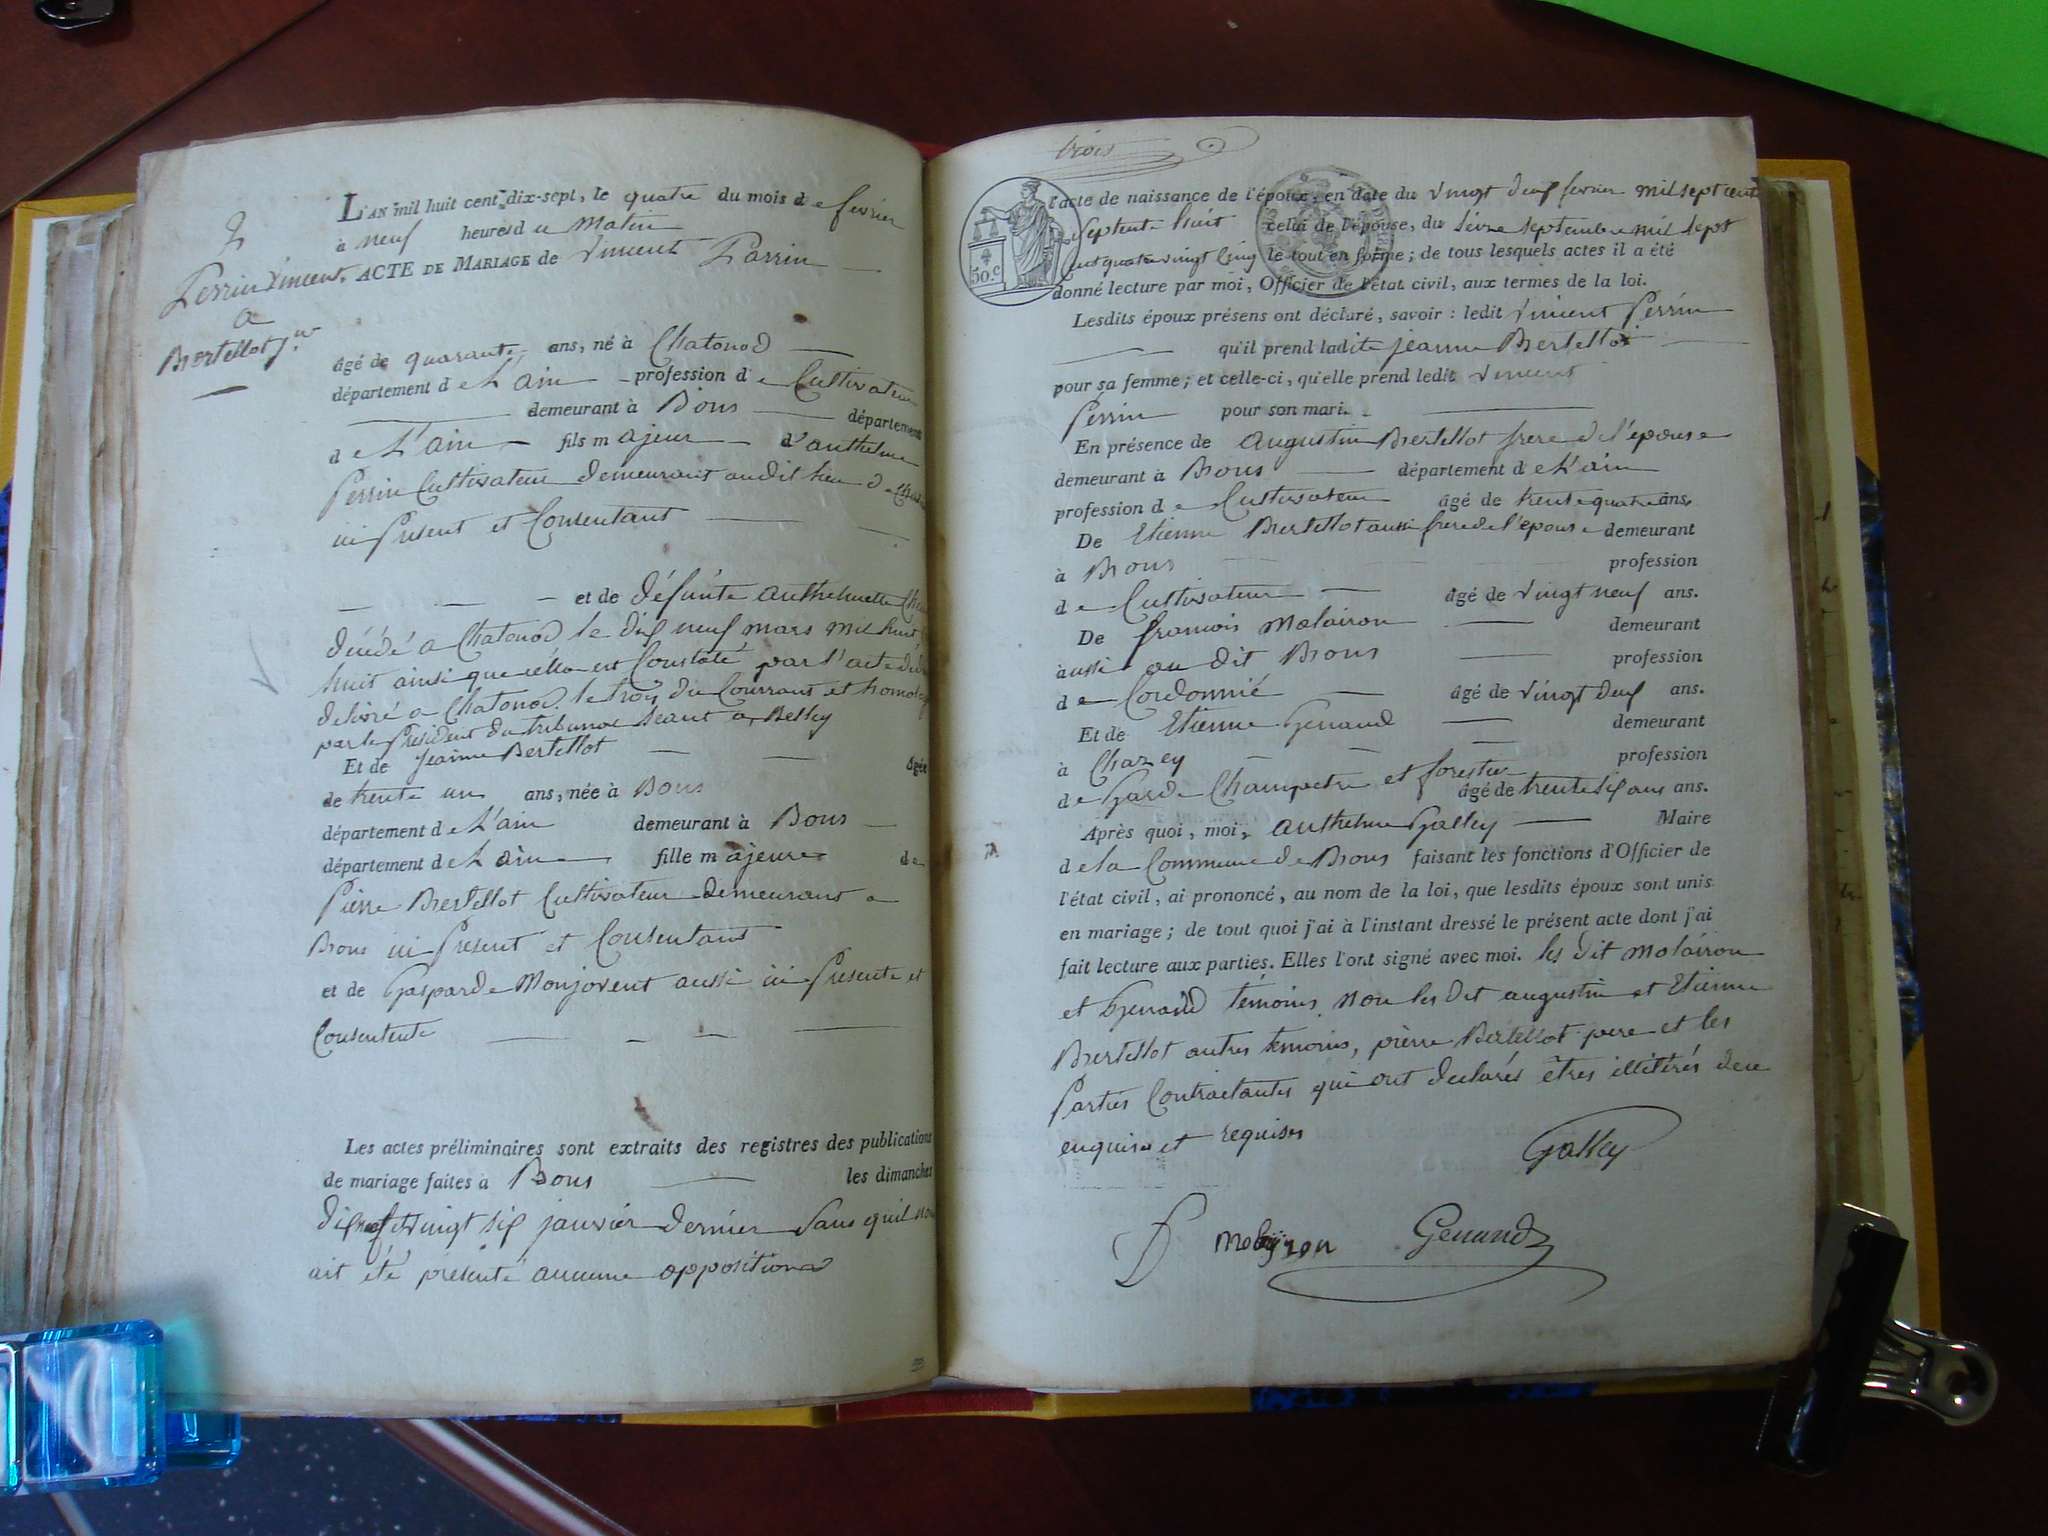 2
Perrin Vincent
a
Bertellot j.ne
L'AN mil huit cent dix-sept, le quatre du mois de fevrier
à neuf heures du Matin
ACTE DE MARIAGE de Vincent Perrin
âgé de quarante ans, né à Chatonod
département de L'ain profession de Cultivateur
demeurant à Bons département
de L'ain fils majeur d'anthelme
Perrin Cultivateur demeurant au dit lieu de
ici Present et Consentant
et de défunte anthelmette
décédé a Chatonod le dix neuf mars mil huit
huit ainsi que cella est Constaté par l'acte de
delivré a Chatonod le trois du Courrant et
par le President du tribunal seant a Belley
Et de jeanne Bertellot âgée
de trente un ans, née à Bons
département de L'ain demeurant à Bons
département de L'ain fille majeure de
Pierre Bertellot Cultivateur demeurant a
Bons ici Present et Consentant
et de Gasparde Monjovent aussi ici Presente et
Consentente
Les actes préliminaires sont extraits des registres des publications
de mariage faites à Bons les dimanches
et vingt six janvier dernier sans quil
ait été presenté aucune opposition
trois
50.c
l'acte de naissance de l'époux, en date du vingt deux fevrier mil sept cent
septente huit celui de l'épouse, du seize septembre mil sept
cent quatre vingt cinq le tout en forme; de tous lesquels actes il a été
donné lecture par moi, Officier de l'état civil, aux termes de la loi.
Lesdits époux présens ont déclaré, savoir: ledit Vincent Perrin
qu'il prend ladite jeanne Bertellot
pour sa femme; et celle-ci, qu'elle prend ledit Vincent
Perrin pour son mari.
En présence de augustin Bertellot frere de l'epouse
demeurant à Bons département de L'ain
profession de Cultivateur âgé de trente quatre ans.
De Etienne Bertellot aussi frere de l'epouse demeurant
à Bons profession
de Cultivateur âgé de vingt neuf ans.
De francois Molairon demeurant
aussi au dit Bons profession
de Cordonnié âgé de vingt deux ans.
Et de Etienne Genand demeurant
à Chazey profession
de Garde Champetre et forestier âgé de trente six ans ans.
Après quoi, moi, anthelme Galley Maire
de la Commune de Bons faisant les fonctions d'Officier de
l'état civil, ai prononcé, au nom de la loi, que lesdits époux sont unis
en mariage; de tout quoi j'ai à l'instant dressé le présent acte dont j'ai
fait lecture aux parties. Elles l'ont signé avec moi. les dit Molairon
et Genand témoins non les dit augustin et Etienne
Bertellot autres temoins, pierre Bertellot pere et les
Parties Contractantes qui ont declarés êtres illitérés de ce
enquises et requises
Galley
Genand